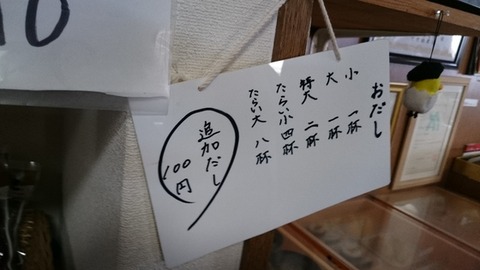 おだし
小 一杯
大 一杯
特大 二杯
たらい小 四杯
たらい大 八杯
追加だし
100円
10